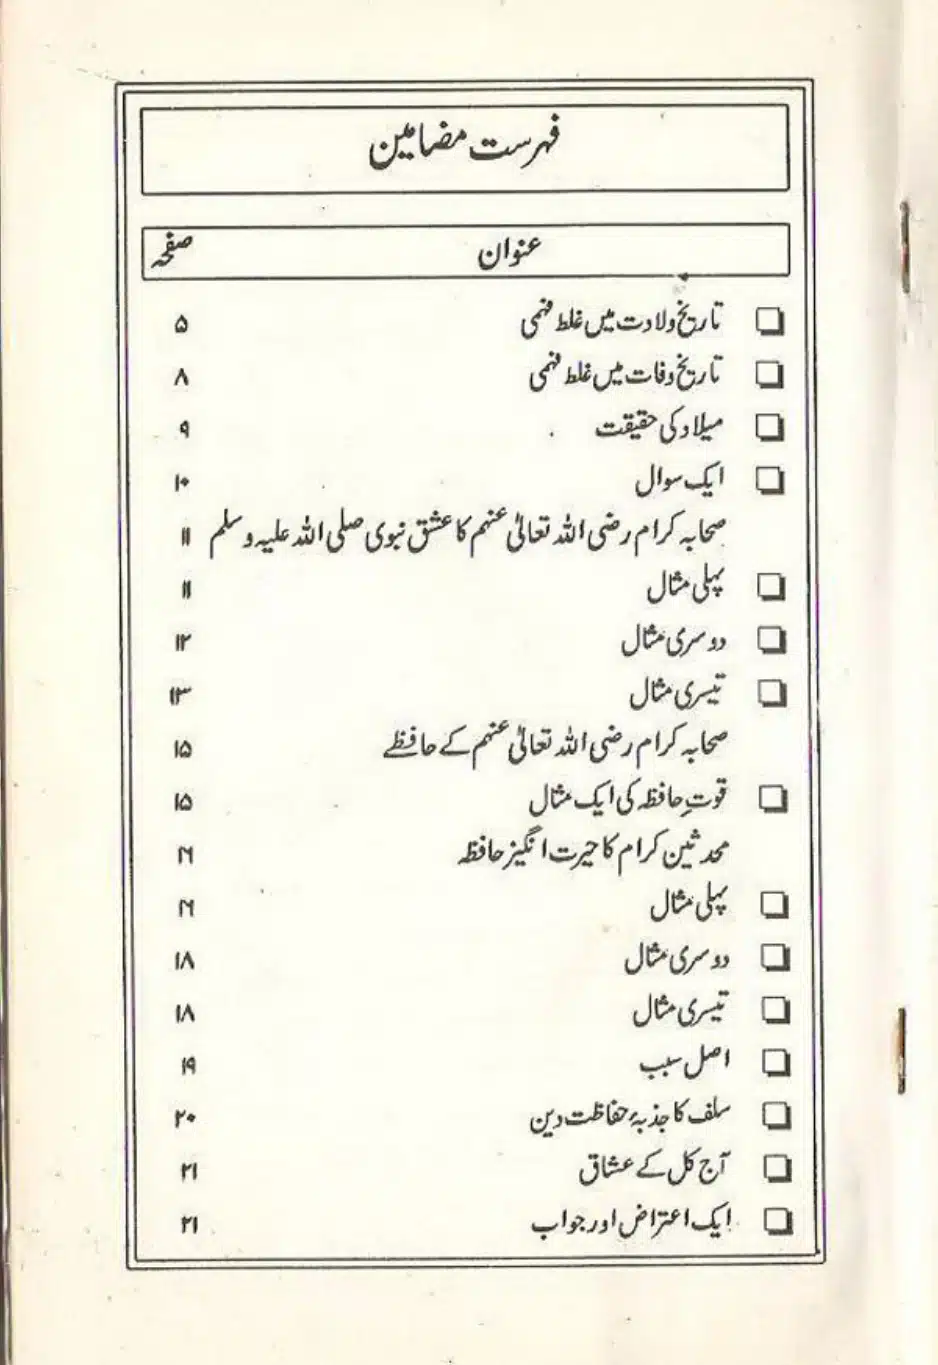 فہرست مضامین
عنوان صفحہ
❏ تاریخ ولادت میں غلط فہمی ۵
❏ تاریخ وفات میں غلط فہمی ۸
❏ میلاد کی حقیقت ۹
❏ ایک سوال ۱۰
صحابہ کرام رضی اللہ تعالیٰ عنہم کا عشق نبوی صلی اللہ علیہ وسلم ۱۱
❏ پہلی مثال ۱۱
❏ دوسری مثال ۱۲
❏ تیسری مثال ۱۳
صحابہ کرام رضی اللہ تعالیٰ عنہم کے حافظے ۱۵
❏ قوتِ حافظہ کی ایک مثال ۱۵
محدثین کرام کا حیرت انگیز حافظہ ۱۶
❏ پہلی مثال ۱۶
❏ دوسری مثال ۱۸
❏ تیسری مثال ۱۸
❏ اصل سبب ۱۹
❏ سلف کا جذبۂ حفاظت دین ۲۰
❏ آج کل کے عشاق ۲۱
❏ ایک اعتراض اور جواب ۲۱